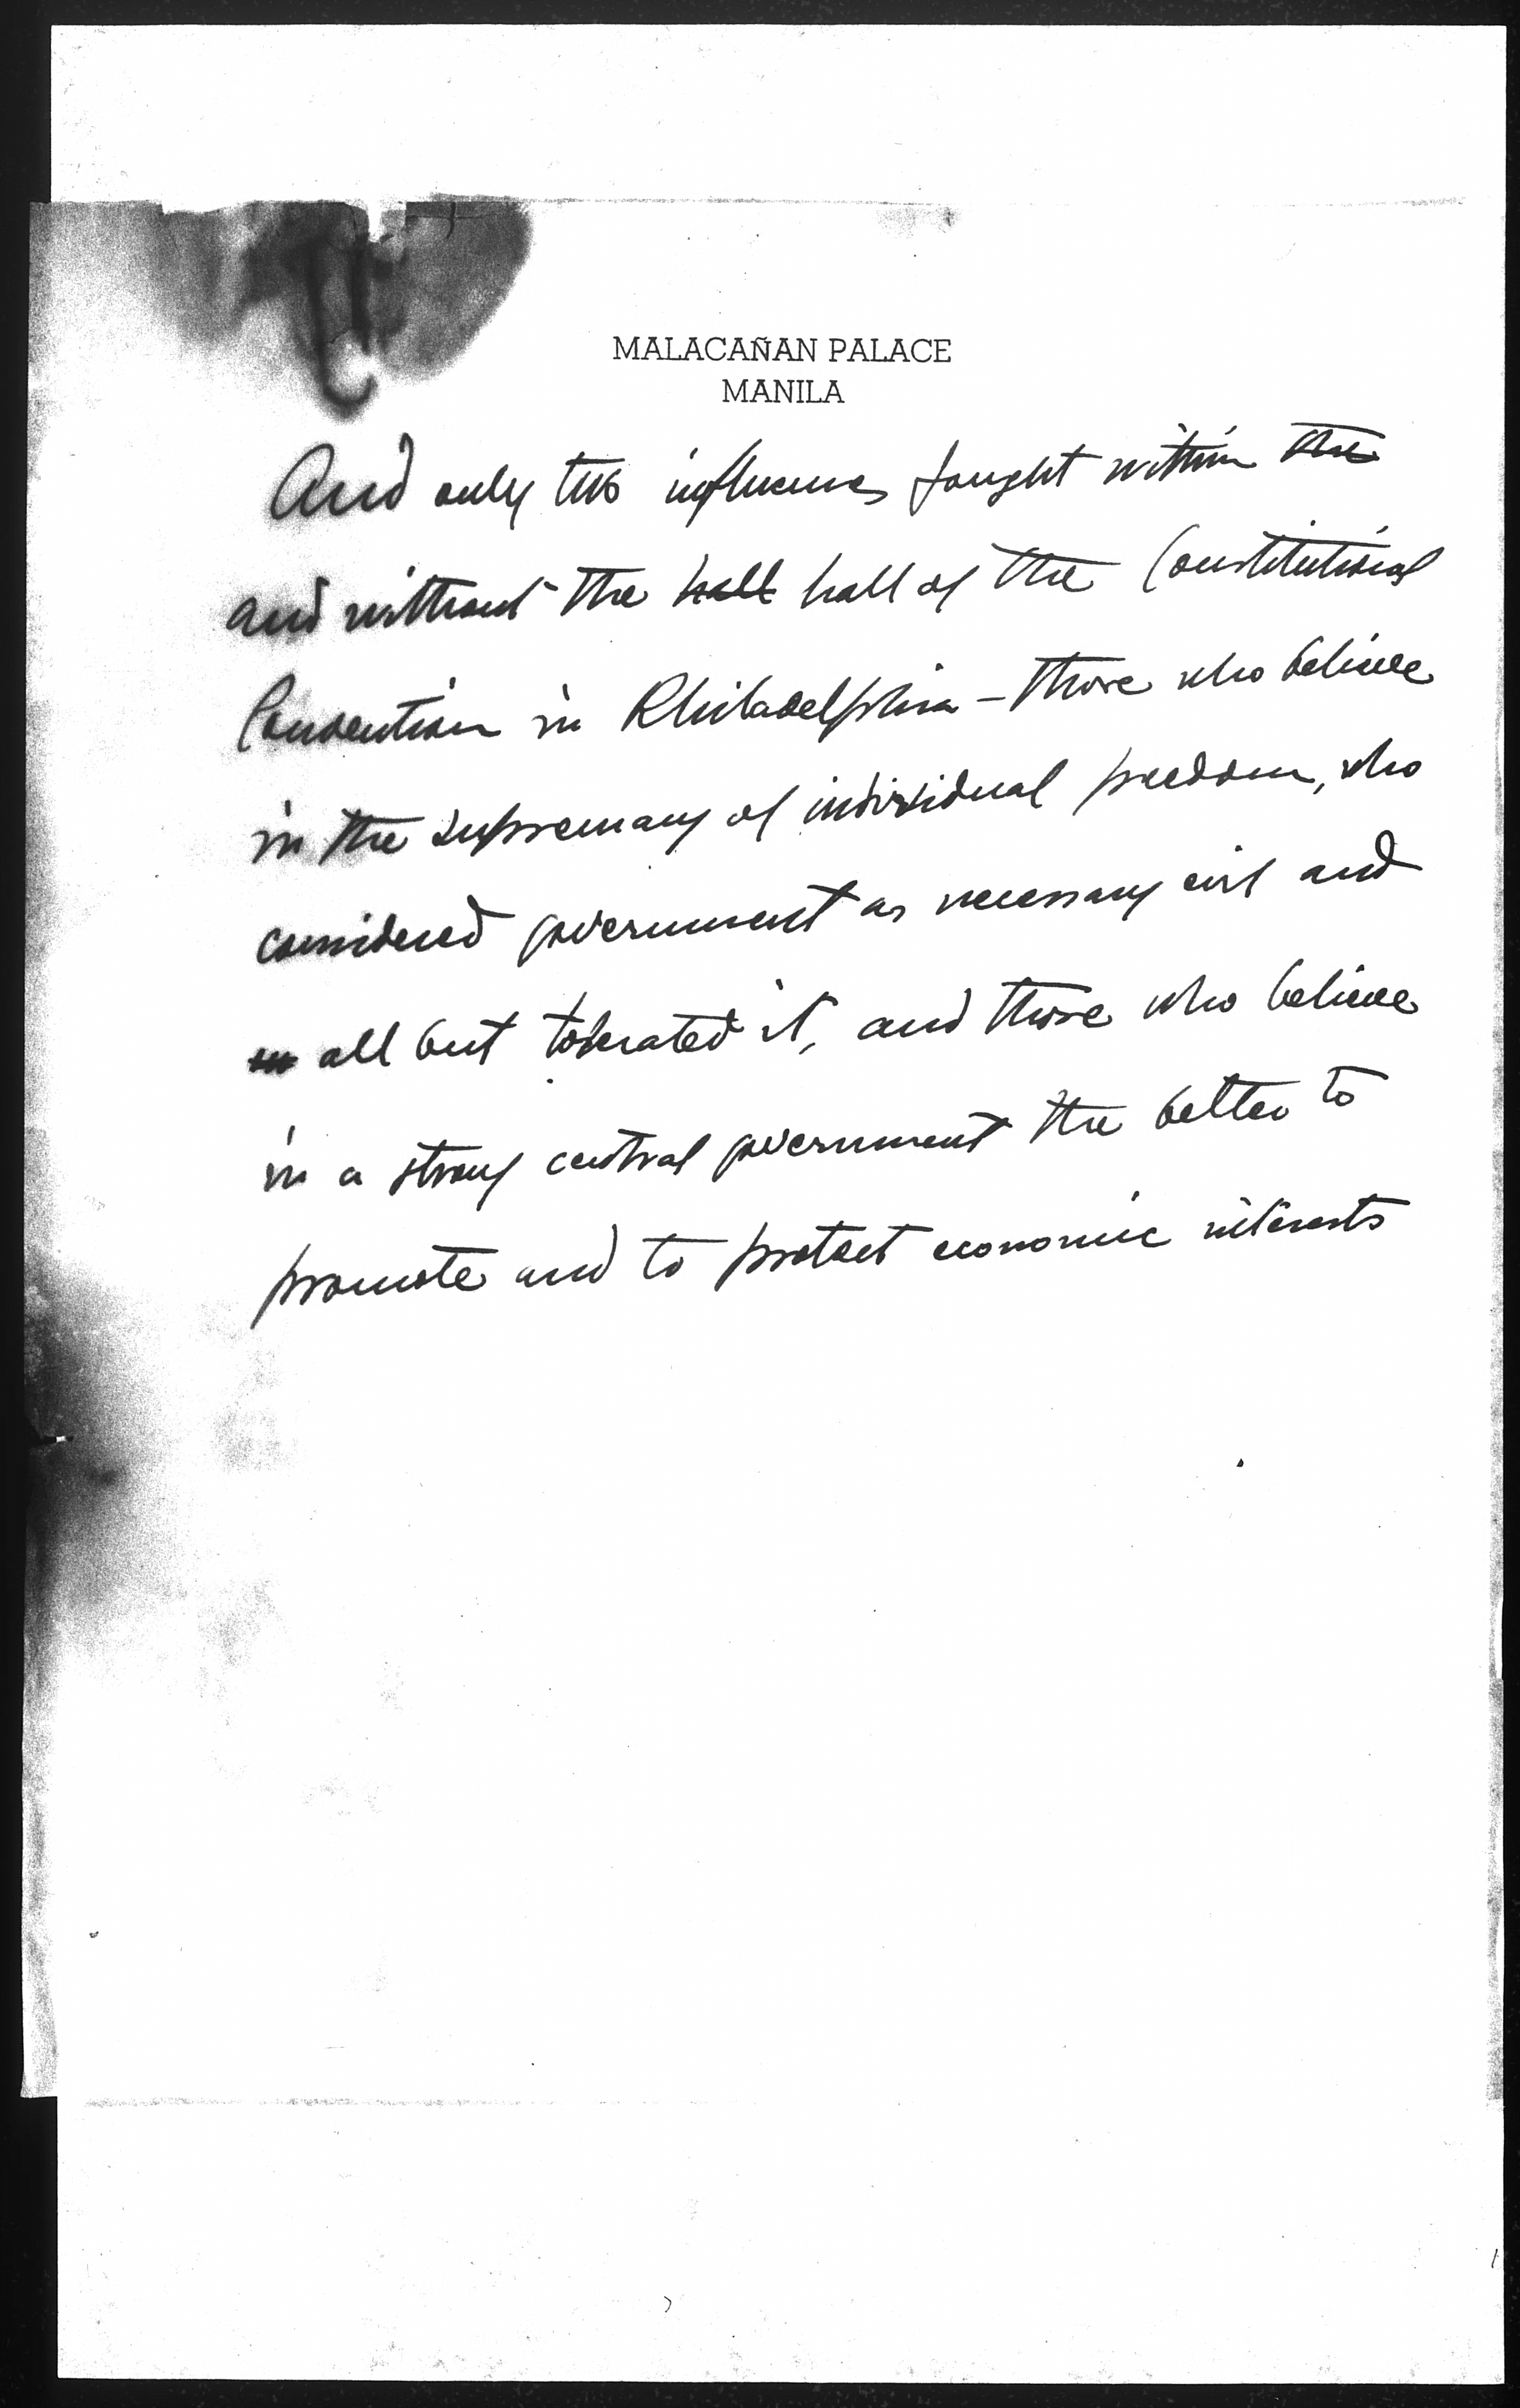 MALACAÑAN PALACE
MANILA
And only two influences fought within the
and without the hall hall of the Constitutional
Convention in Philadelphia – those who believe
in the supremacy of individual freedom, who
considered government as necessary evil and
all but tolerated it, and those who believe
in a strong central government the better to
promote and to protect economic interests